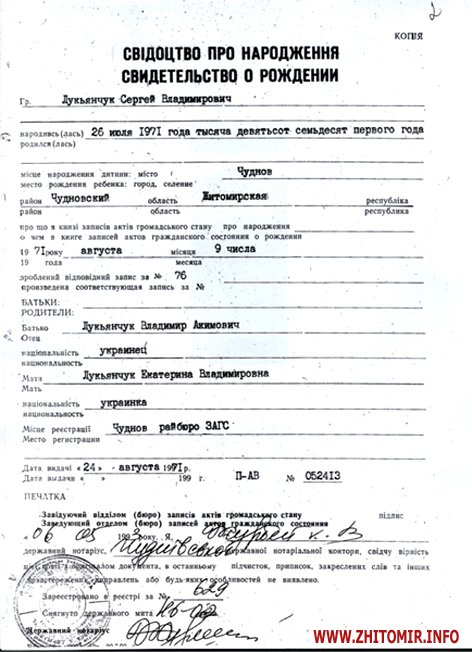 2
КОПІЯ
СВІДОЦТВО ПРО НАРОДЖЕННЯ
СВИДЕТЕЛЬСТВО О РОЖДЕНИИ
Гр. Лукьянчук Сергей Владимирович
народивсь (лась) 26 июля 1971 года тысяча девятьсот семьдесят первого года
родился (лась)
місце народження дитини: місто Чуднов
место рождения ребенка: город, селение
район Чудновский область Житомирская республіка
район область республика
про що в книзі записів актів громадського стану про народження
о чем в книге записей актов гражданского состояния о рождении
19 71 року августа місяця 9 числа
19 года месяца
зроблений відповідний запис за № 76
произведена соответствующая запись за №
БАТЬКИ:
РОДИТЕЛИ:
Батько Лукьянчук Владимир Акимович
Отец
національність украинец
национальность
Мати Лукьянчук Екатерина Владимировна
Мать
національність украинка
национальность
Місце реєстрації Чуднов райбюро ЗАГС
Место регистрации
Дата видачі «24» августа 1971р.
Дата выдачи « » 199 г. П-АВ № 052413
ПЕЧАТКА
Завідуючий відділом (бюро) записів актів громадського стану підпис
Заведующий отделом (бюро) записей актов гражданского состояния
«06 05 1993 року, Я,
державний нотаріус, державної нотаріальної контори, свідчу вірність
цієї копії з оригіналом документа, в останньому підчисток, приписок, закреслених слів та інших
незастережених виправлень або будь-яких особливостей не виявлено.
Зареєстровано в реєстрі за № 629
Стягнуто державного мита
Державний нотаріус
WWW.ZHITOMIR.INFO